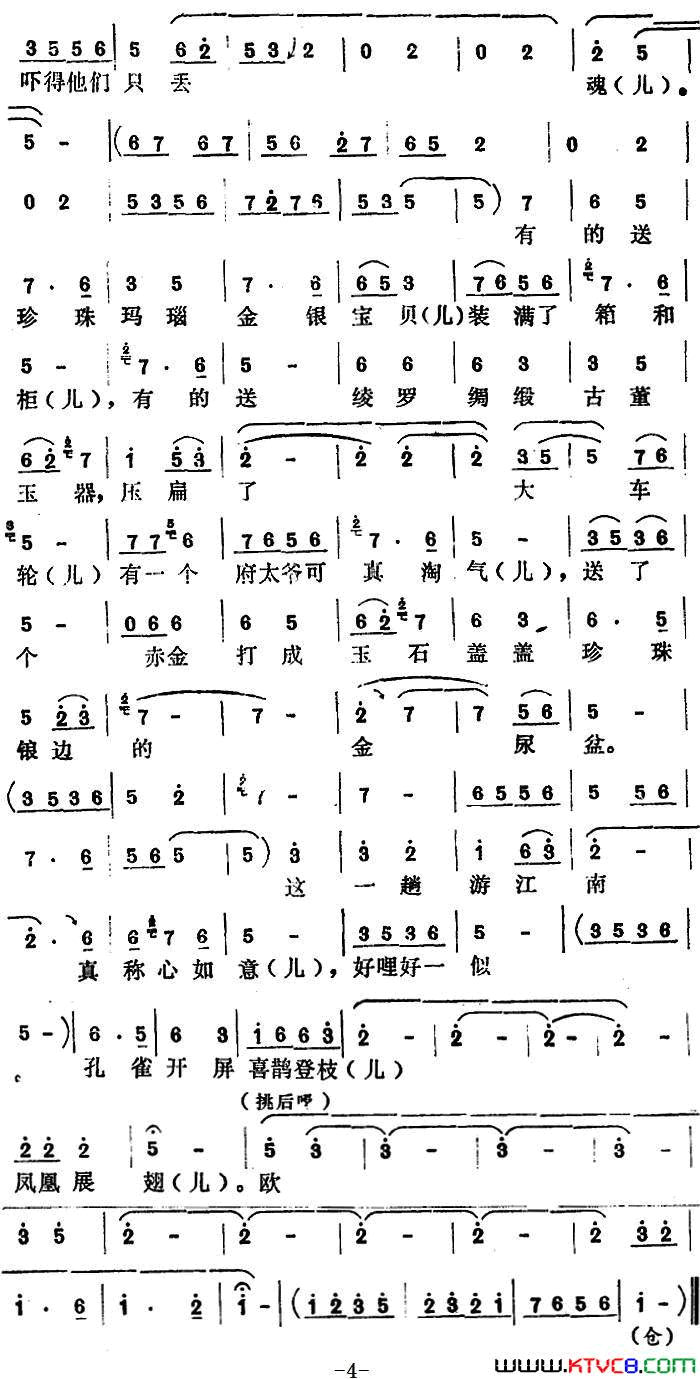 3 5 5 6 | 5 6 2 | 5 3 2 | 0 2 | 0 2 | 2 5 |
吓得他们 只 丢 魂(儿)。
5 - | (6 7 6 7 | 5 6 2 7 | 6 5 2 | 0 2 |
0 2 | 5 3 5 6 | 7 2 7 6 | 5 3 5 | 5) 7 | 6 5 |
有 的 送
7 · 6 | 3 5 | 7 · 6 | 6 5 3 | 7 6 5 6 | 7 · 6 |
珍 珠 玛 瑙 金 银 宝 贝(儿)装 满了 箱 和
5 - | 7 · 6 | 5 - | 6 6 | 6 3 | 3 5 |
柜(儿),有 的 送 绫 罗 绸 缎 古 董
6 2 7 | i 5 3 | 2 - | 2 2 | 2 3 5 | 5 7 6 |
玉 器,压 扁 了 大 车
5 - | 7 7 6 | 7 6 5 6 | 7 · 6 | 5 - | 3 5 3 6 |
轮(儿)有一个 府太爷可 真 淘 气(儿),送 了
5 - | 0 6 6 | 6 5 | 6 2 7 | 6 3 | 6 · 5 |
个 赤金 打 成 玉 石 盖 盖 珍 珠
5 2 3 | 7 - | 7 - | 2 7 | 7 5 6 | 5 - |
锒 边 的 金 尿 盆。
(3 5 3 6 | 5 2 | - | 7 - | 6 5 5 6 | 5 5 6 |
7 · 6 | 5 6 5 | 5) 3 | 3 2 | i 6 3 | 2 - |
这 一 趟 游 江 南
2 · 6 | 6 7 6 | 5 - | 3 5 3 6 | 5 - | (3 5 3 6 |
真 称 心 如 意(儿),好哩好一 似
5 -) | 6 · 5 | 6 3 | i 6 6 3 | 2 - | 2 - | 2 - | 2 - |
。 孔 雀 开 屏 喜鹊登枝(儿)
(挑后呼)
2 2 2 | 5 - | 5 3 | 3 - | 3 - | 3 - |
凤凰 展 翅(儿)。欧
3 5 | 2 - | 2 - | 2 - | 2 - | 2 3 2 |
i · 6 | i · 2 | i - | (i 2 3 5 | 2 3 2 i | 7 6 5 6 | i -) ‖
(仓)
-4-
www.KTVC8.COM